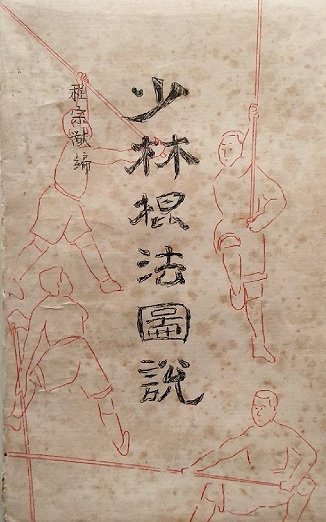 少林棍法圖說
程宗猷編